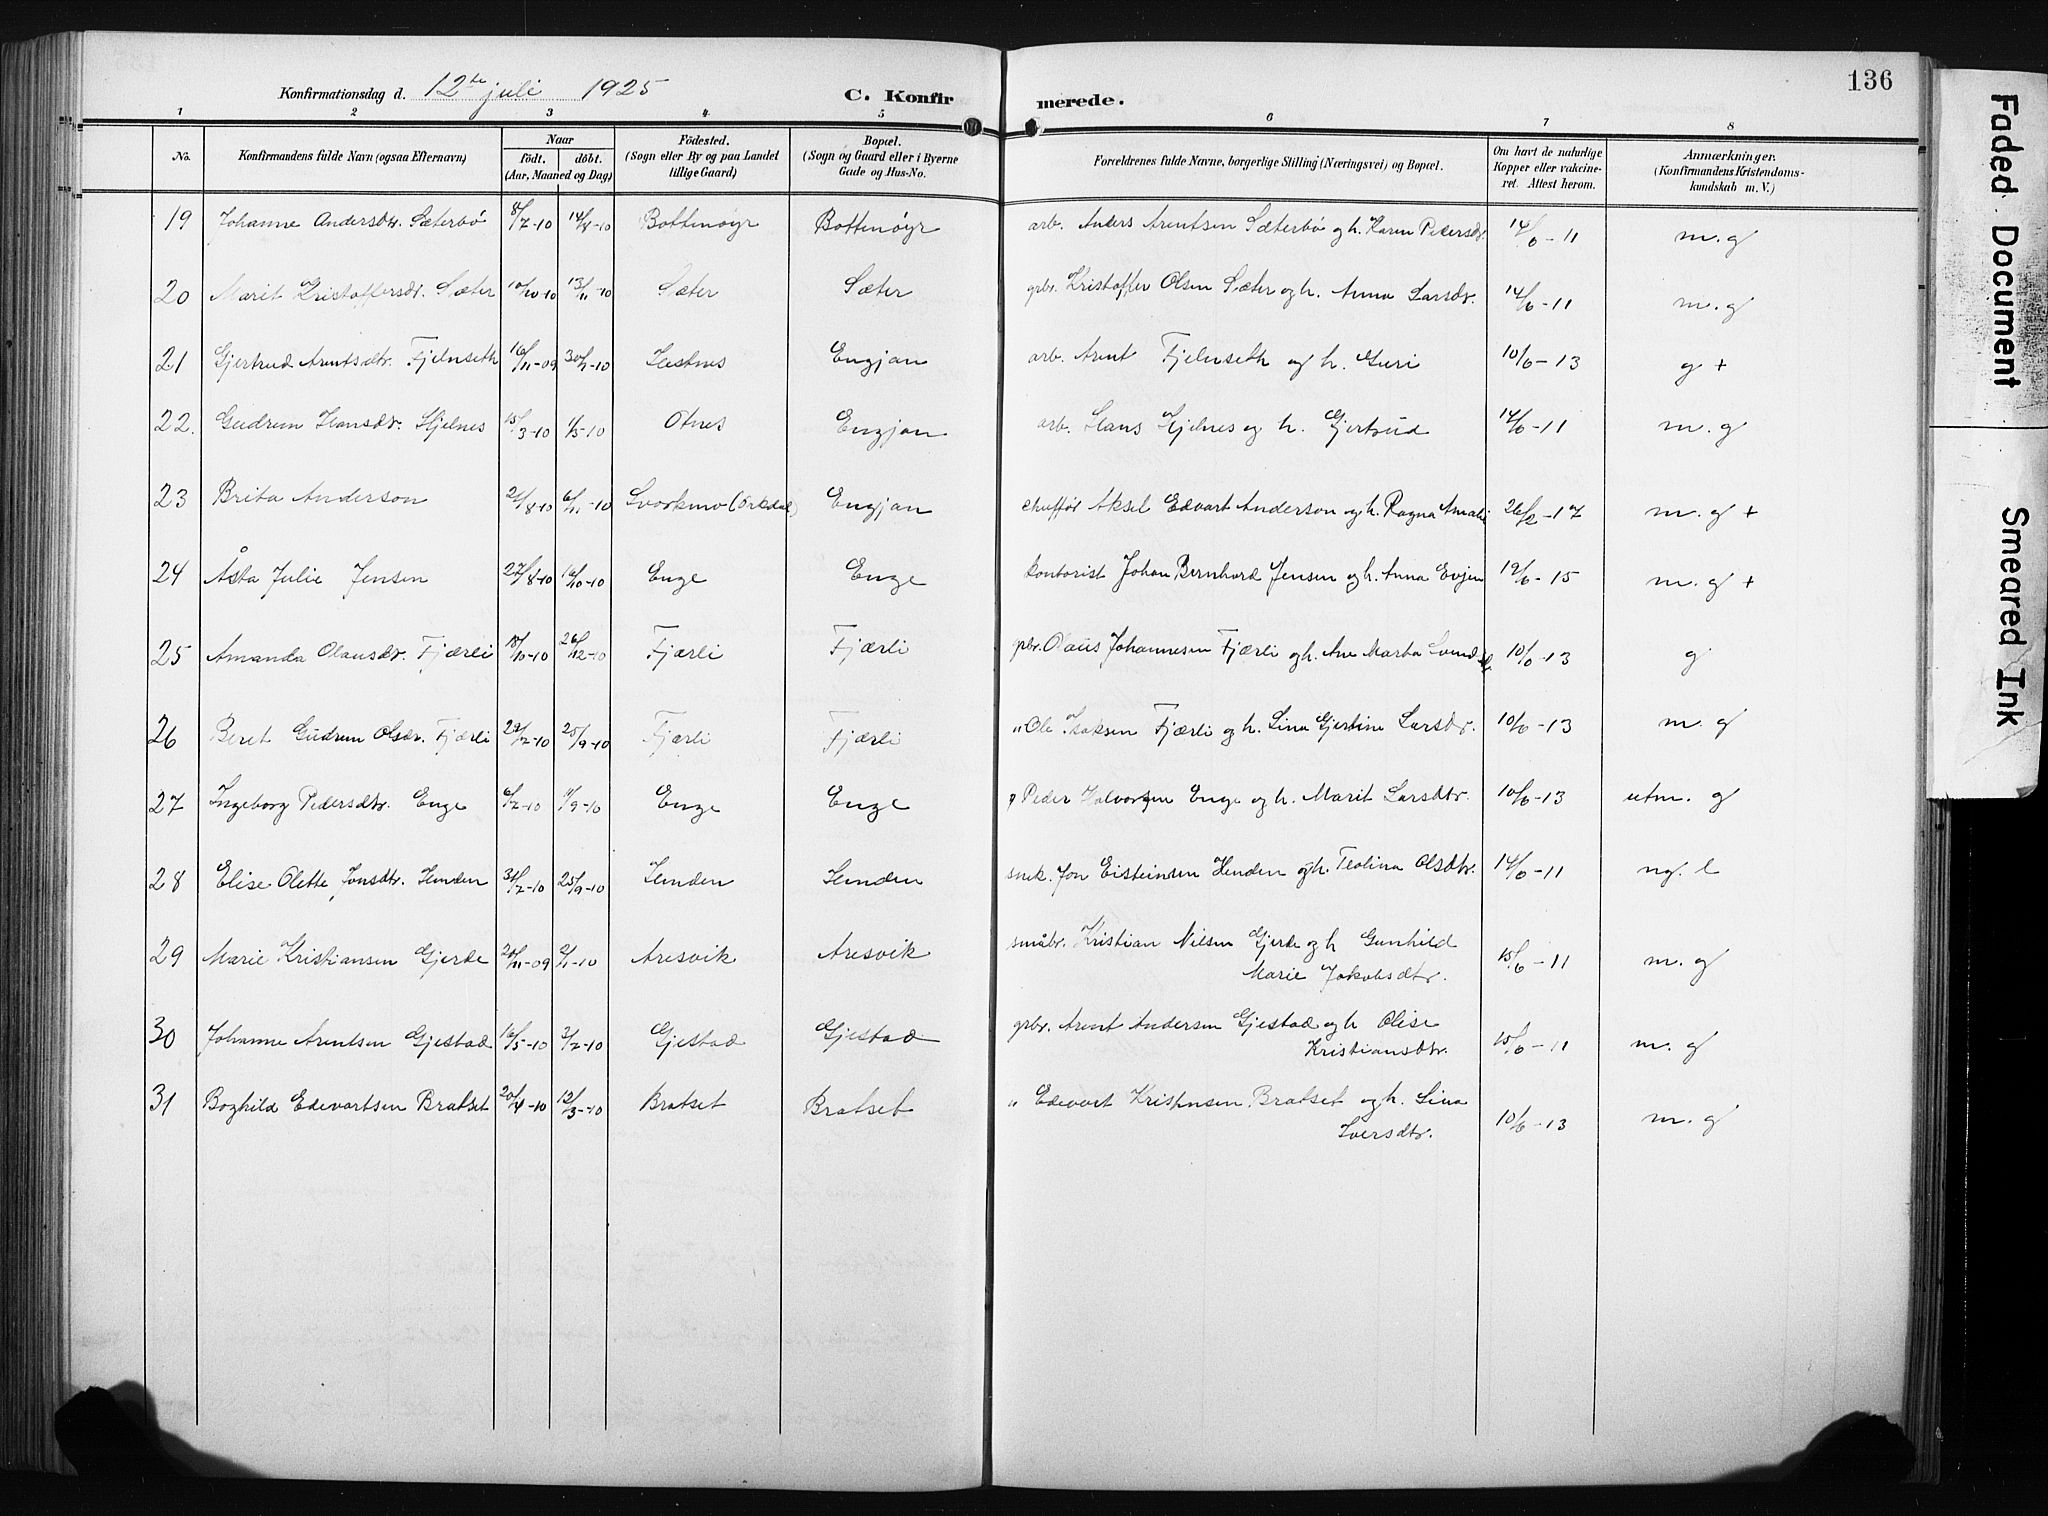 Konfirmationsdag d. 12te juli 1925 C. Konfirmerede. 136
1 2 3 4 5 6 7 8
No. Konfirmandens fulde Navn (ogsaa Efternavn) Naar födt. döbt. (Aar, Maaned og Dag) Födested. (Sogn eller By og paa Landet tillige Gaard) Bopæl. (Sogn og Gaard eller i Byerne Gade og Hus-No. Forældrenes fulde Navne, borgerlige Stilling (Næringsvei) og Bopæl. Om havt de naturlige Kopper eller vakcineret. Attest herom. Anmærkninger. (Konfirmandens Kristendomskundskab m. V.)
19 Johanne Andersdtr. Sæterbö 8/7-10 14/8-10 Bottenöyr Bottenöyr arb. Anders Arentsen Sæterbö og h. Karen Pedersdr. 14/6-11 m. g
20 Marit Kristoffersdr. Sæter 10/10-10 13/11-10 Sæter Sæter gbr. Kristoffer Olsen Sæter og h. Anna Larsdr. 14/6-11 m. g
21 Gjertrud Arentsdtr. Fjelnseth 16/11-09 30/1-10 Hestnes Engjan arb. Arent Fjelnseth og h. Guri 10/6-13 g +
22. Gudrun Hansdr. Hjelnes 15/3-10 1/5-10 Otnes Engjan arb. Hans Hjelnes og h. Gjertrud 14/6-11 m. g
23 Brita Anderson 21/8-10 6/11-10 Svorkmo (Orkdal) Engjan chufför Aksel Edvart Anderson og h. Ragna Amalie 26/2-17 m. g +
24 Åsta Julie Jensen 27/8-10 16/10-10 Enge Enge kontorist Johan Bernhard Jensen og h. Anna Evjen 19/6-15 m. g +
25 Amanda Olausdr. Fjærli 18/10-10 26/12-10 Fjærli Fjærli gbr. Olaus Johannesen Fjærli og h. Ane Marta 10/6-13 g
26 Beret Gudrun Olsdr. Fjærli 29/7-10 25/9-10 Fjærli Fjærli " Ole Isaksen Fjærli og h. Lina Gjertine Larsdr. 10/6-13 m. g
27 Ingeborg Pedersdtr. Enge 6/7-10 11/9-10 Enge Enge g Peder Halvorsen Enge og h. Marit Larsdtr. 10/6-13 utm. g
28 Elise Olette Jonsdtr. Henden 31/7-10 25/9-10 Henden Henden snek. Jon Eisteinsen Henden og h. Teolina Olsdtr. 14/6-11 ng. l
29 Marie Kristiansen Gjerde 24/11-09 2/1-10 Aresvik Aresvik småbr. Kristian Nilsen Gjerde og h Gunhild 15/6-11 m. g
Marie Jakobsdtr.
30 Johanne Arentsen Gjestad 16/5-10 3/7-10 Gjestad Gjestad gbr. Arent Andersen Gjestad og h Olise 15/6-11 m. g
Kristiansdtr.
31 Borghild Edevartsen Bratset 20/4-10 12/3-10 Bratset Bratset " Edevart Kristensen Bratset og h. Lina 10/6-13 m. g
Iversdtr.
Faded Document
Smeared Ink